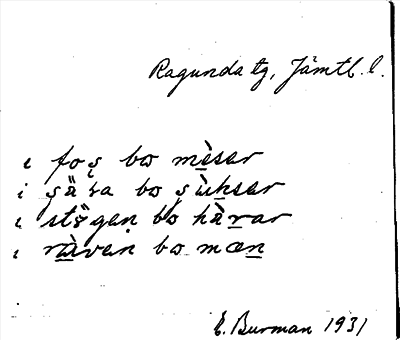 Ragunda tg, Jämtl. l.
i foş bω mèsar
i sä̀ra bω sùksar
i stö̀gen bo hàrar
i ràven bω mœn
E. Burman 1931